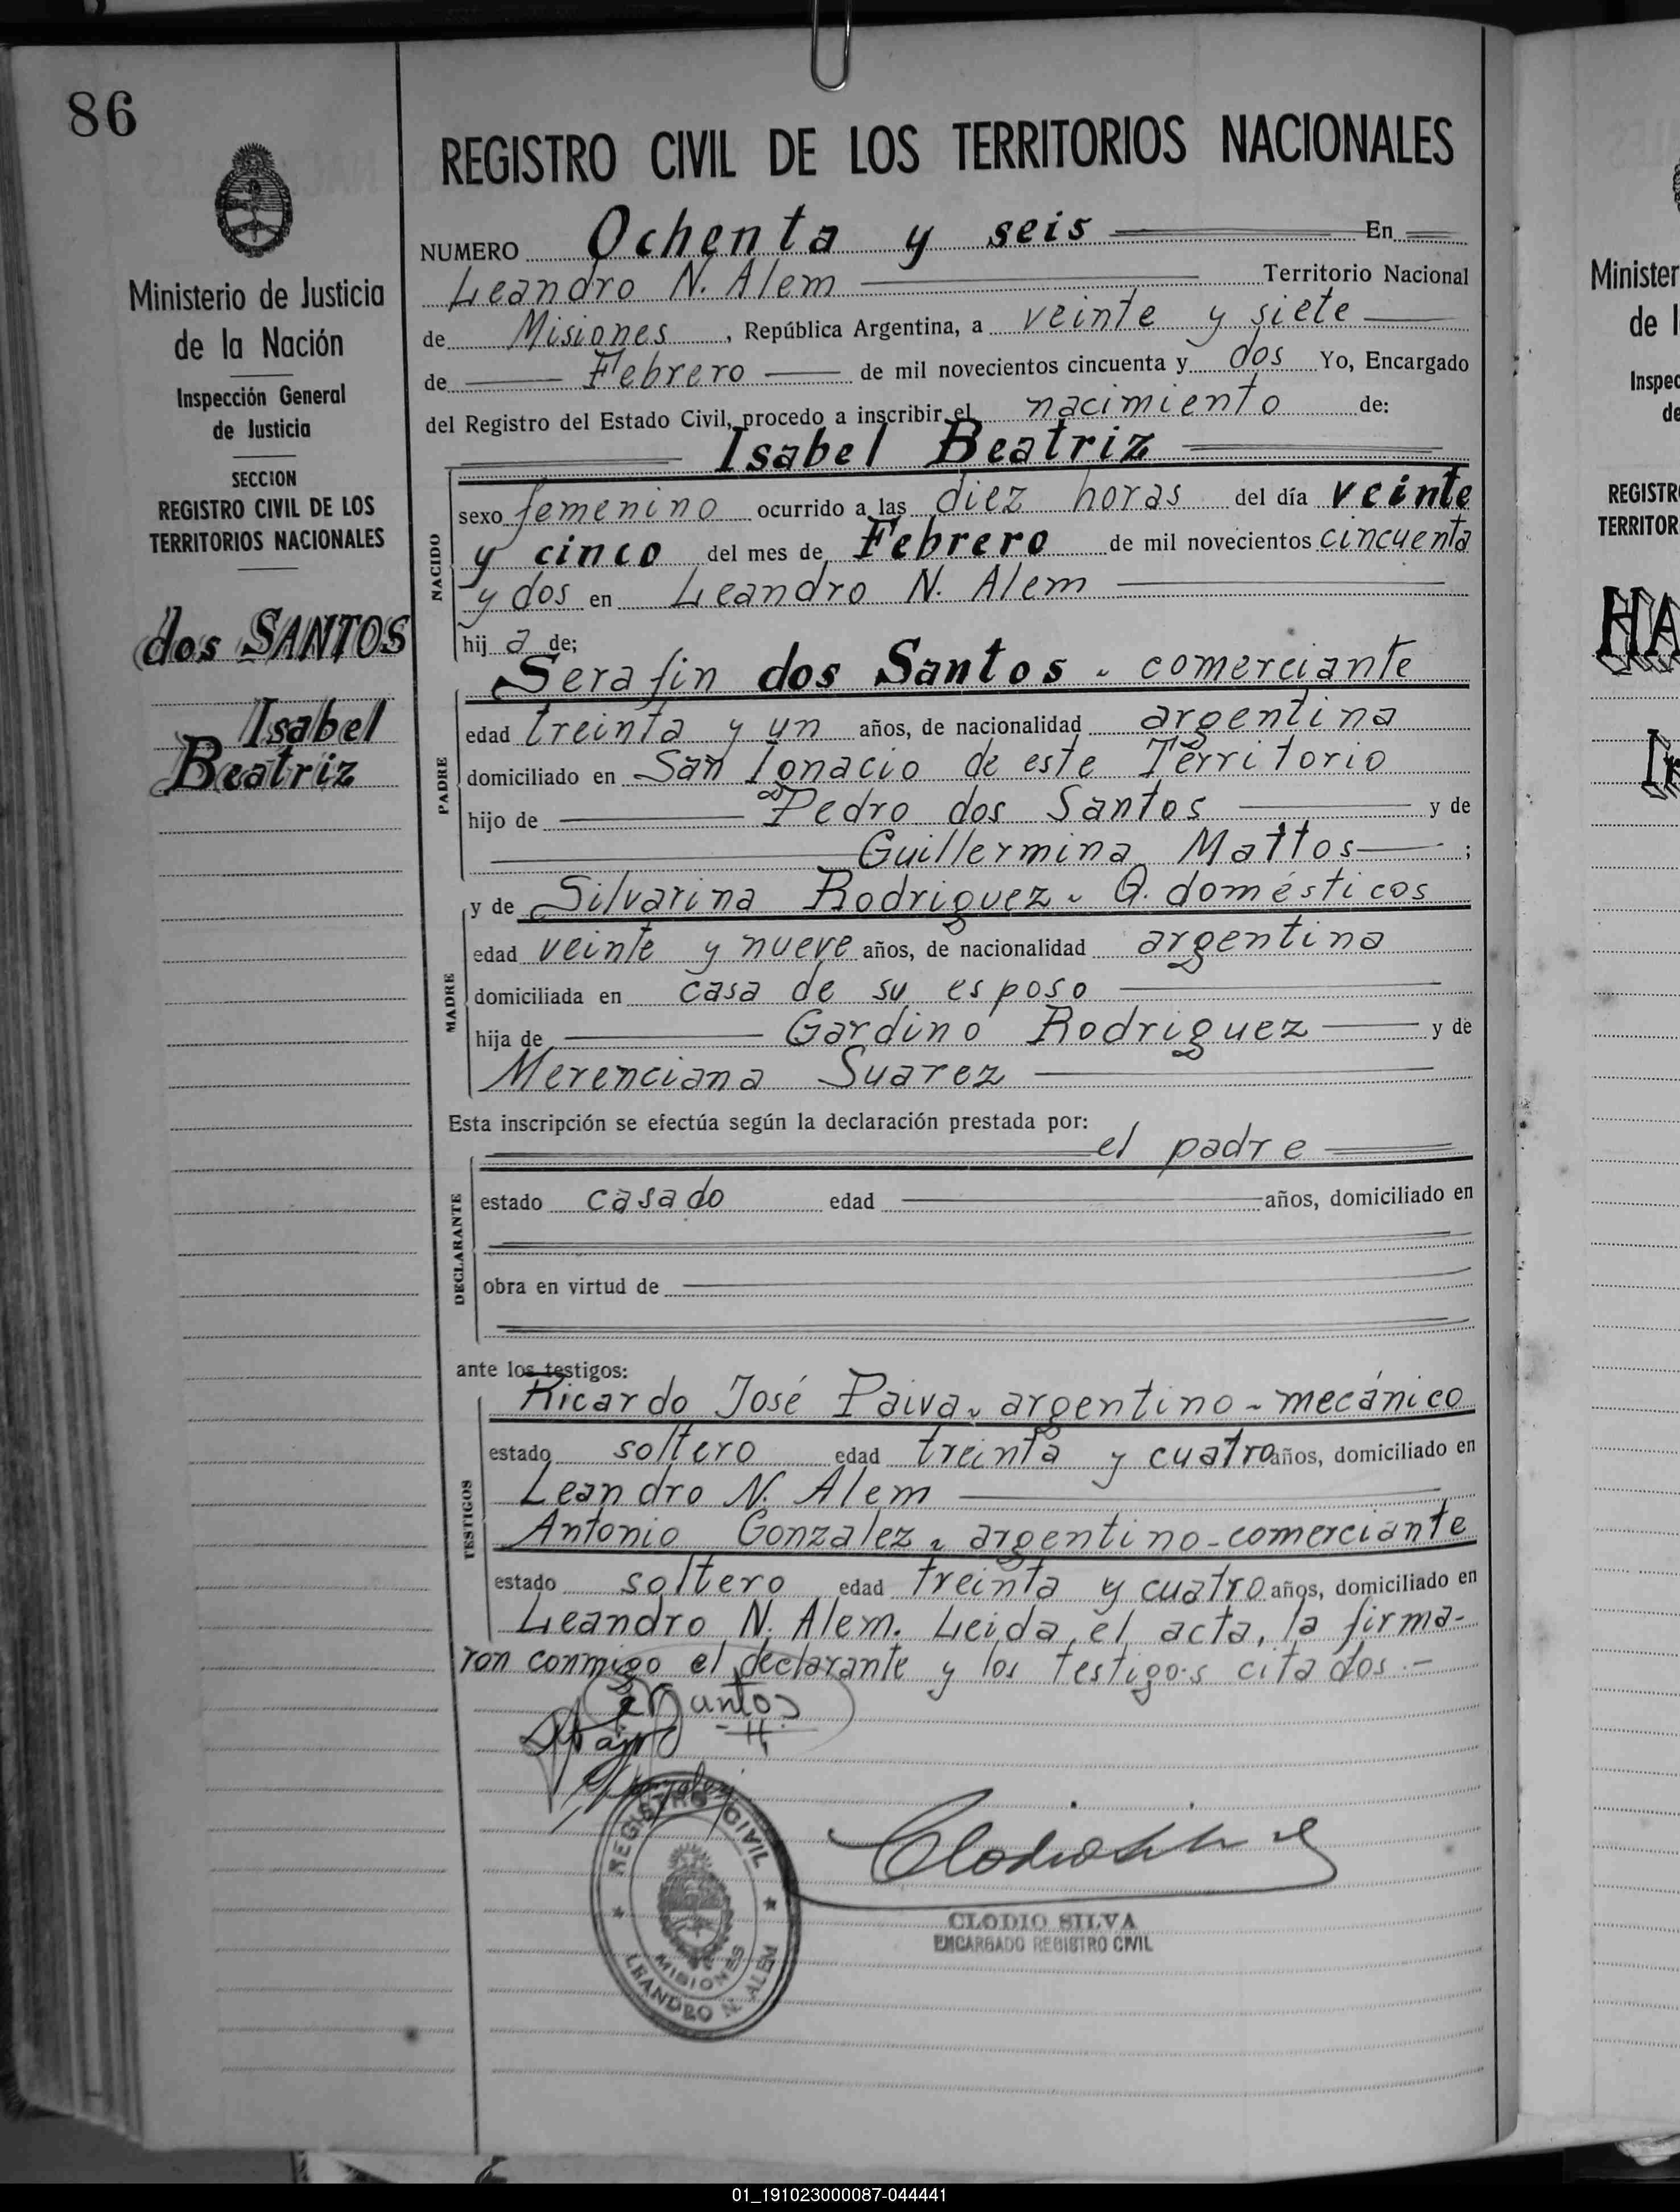 86
REGISTRO CIVIL DE LOS TERRITORIOS NACIONALES
Ministerio de Justicia
de la Nación
Inspección General
de Justicia
SECCION
REGISTRO CIVIL DE LOS
TERRITORIOS NACIONALES
dos SANTOS
Isabel
Beatriz
NUMERO Ochenta y seis En
Leandro N. Alem Territorio Nacional
de Misiones, República Argentina, a veinte y siete
de Febrero de mil novecientos cincuenta y dos Yo, Encargado
del Registro del Estado Civil, procedo a inscribir el nacimiento de:
Isabel Beatriz
NACIDO
sexo femenino ocurrido a las diez horas del día veinte
y cinco del mes de Febrero de mil novecientos cincuenta
y dos en Leandro N. Alem
hij a de;
Serafin dos Santos - comerciante
PADRE
edad treinta y un años, de nacionalidad argentina
domiciliado en San Ignacio de este Territorio
hijo de Pedro dos Santos y de
Guillermina Mattos ;
y de Silvarina Rodriguez - Q. domésticos
MADRE
edad veinte y nueve años, de nacionalidad argentina
domiciliada en casa de su esposo
hija de Gardino Rodriguez y de
Merenciana Suarez
Esta inscripción se efectúa según la declaración prestada por:
el padre
DECLARANTE
estado casado edad años, domiciliado en
obra en virtud de
ante los testigos:
Ricardo José Paiva - argentino - mecánico
TESTIGOS
estado soltero edad treinta y cuatro años, domiciliado en
Leandro N. Alem
Antonio Gonzalez - argentino - comerciante
estado soltero edad treinta y cuatro años, domiciliado en
Leandro N. Alem. Leida el acta, la firma-
ron conmigo el declarante y los testigos citados.-
REGISTRO CIVIL
MISIONES
LEANDRO N. ALEM
CLODIO SILVA
ENCARGADO REGISTRO CIVIL
Minister
de l
Inspec
de
REGISTR
TERRITOR
HA
01_191023000087-044441